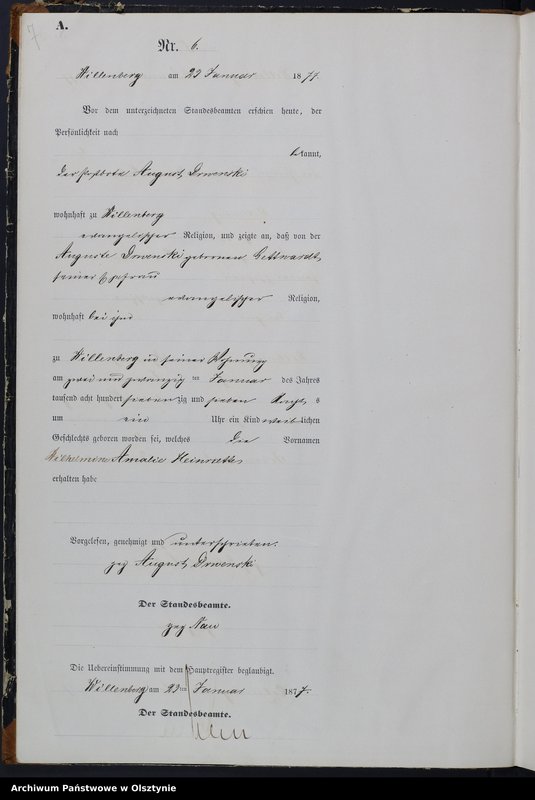 7
A.
Nr. 6.
Willenberg am 23 Januar 1877.
Vor dem unterzeichneten Standesbeamten erschien heute, der
Persönlichkeit nach
bekannt,
der August Drwenski
wohnhaft zu Willenberg
evangelischer Religion, und zeigte an, daß von der
Auguste Drwenski geborenen Gettwardt,
seiner Ehefrau
evangelischer Religion,
wohnhaft bei ihm
zu Willenberg in seiner Wohnung
am zwei und zwanzig ten Januar des Jahres
tausend acht hundert siebenzig und sieben Nachts
um ein Uhr ein Kind weiblichen
Geschlechts geboren worden sei, welches die Vornamen
Wilhelmine Amalie Henriette
erhalten habe
Vorgelesen, genehmigt und unterschrieben.
gez August Drwenski
Der Standesbeamte.
gez Nau
Die Uebereinstimmung mit dem Hauptregister beglaubigt.
Willenberg am 23ten Januar 1877.
Der Standesbeamte.
Nau
Archiwum Państwowe w Olsztynie